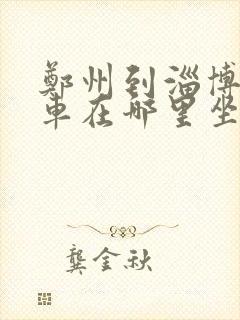 鄭州到淄博
車在哪里坐
龔金秋